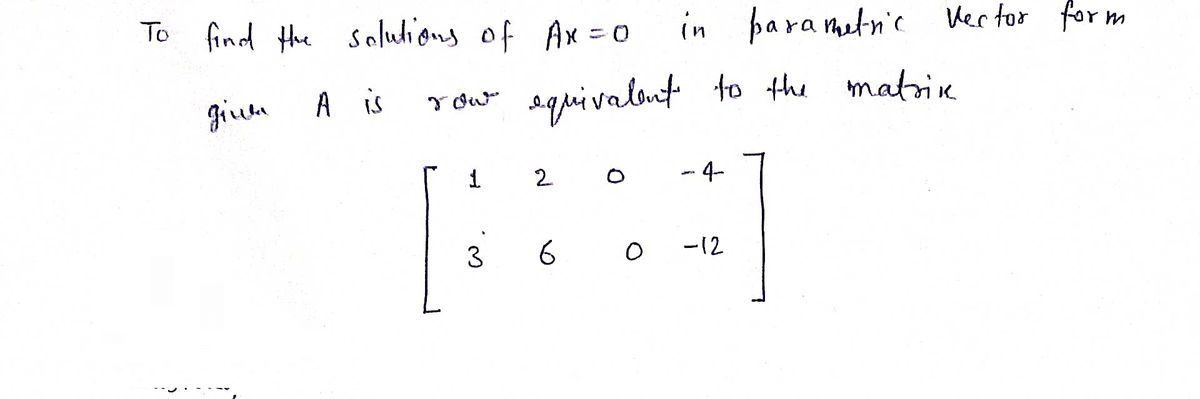 To find the solutions of Ax=0 in parametric Vector form
given A is row equivalent to the matrix
1 2 0 -4
3 6 0 -12